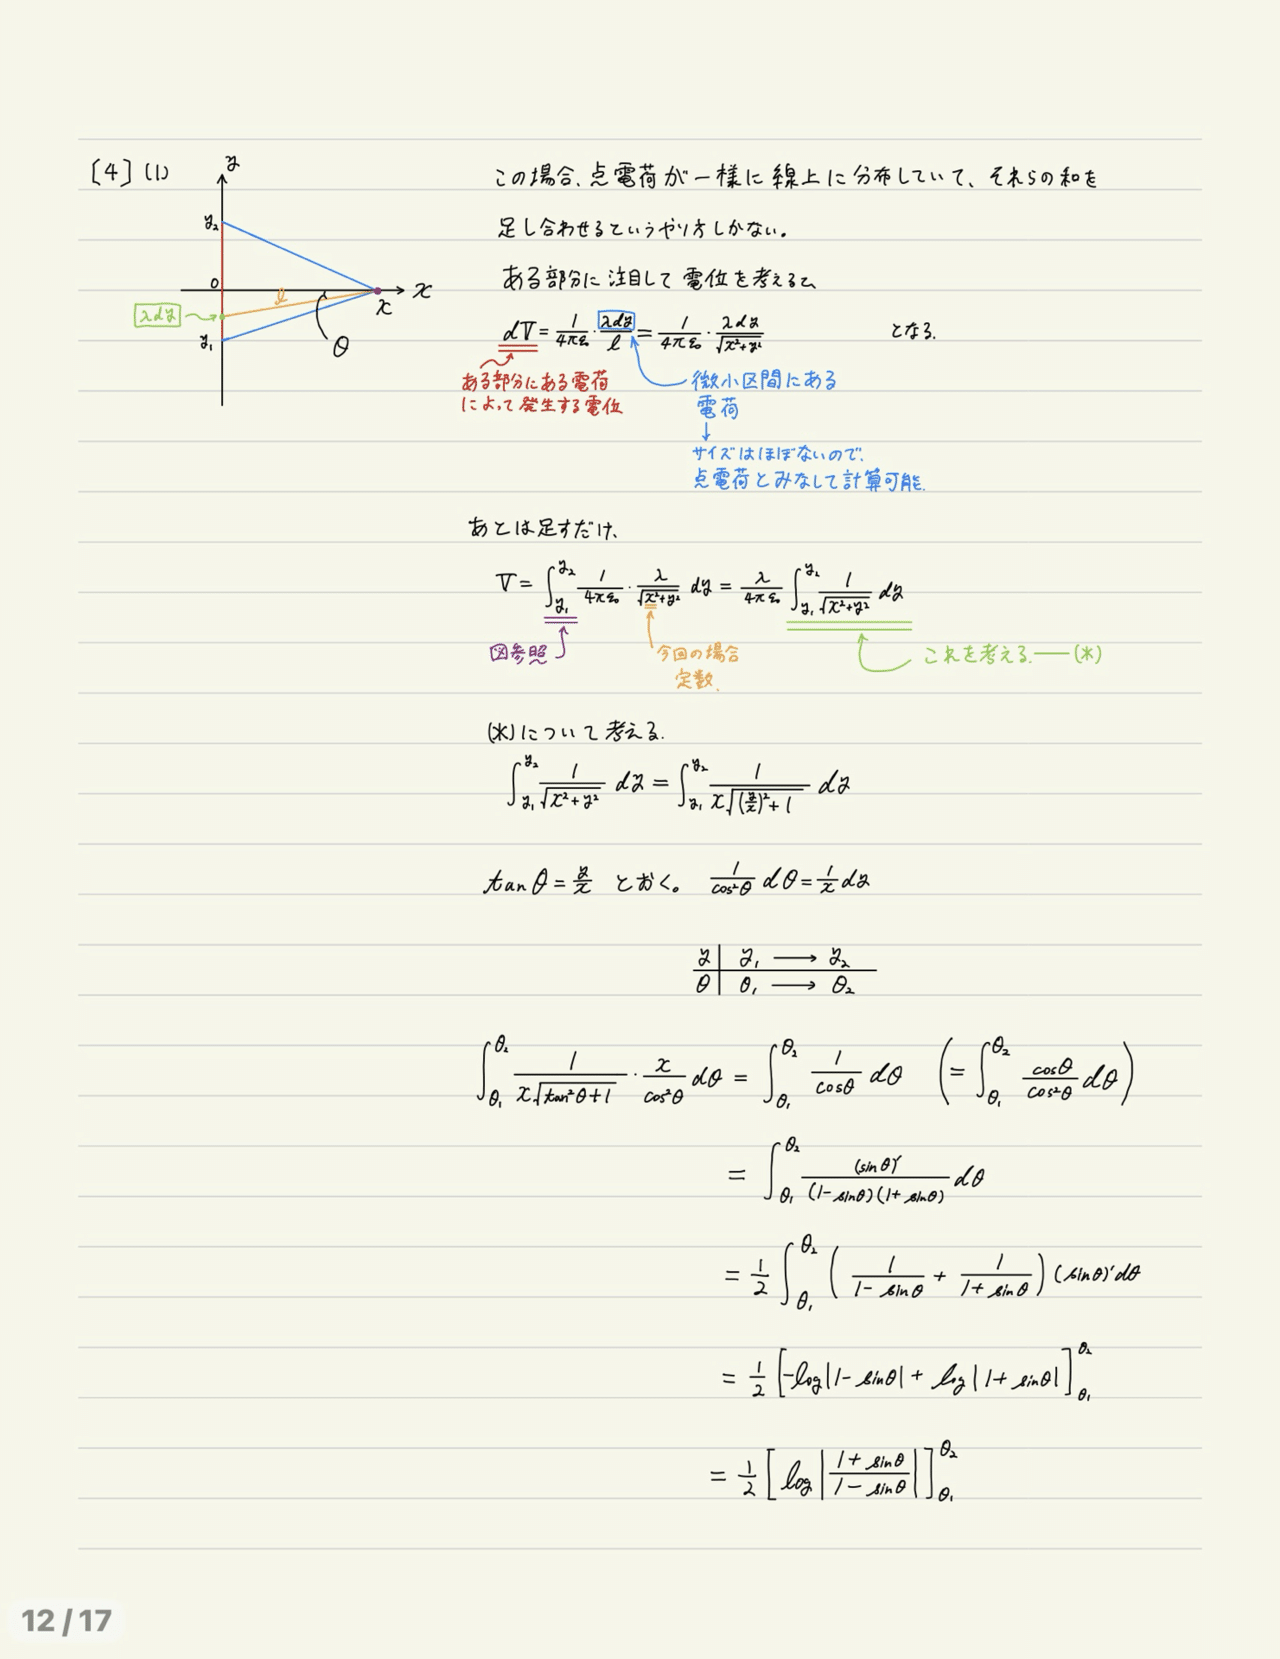 [4] (1)
y
y₂
0
l
x
x
λdy
y₁
θ
この場合、点電荷が一様に線上に分布していて、それらの和を
足し合わせるというやり方しかない。
ある部分に注目して電位を考えると、
dV = 1/4πε₀ · λdy/l = 1/4πε₀ · λdy/√(x²+y²) となる.
ある部分にある電荷
によって発生する電位
微小区間にある
電荷
↓
サイズはほぼないので、
点電荷とみなして計算可能.
あとは足すだけ、
V = ∫_{y₁}^{y₂} 1/4πε₀ · λ/√(x²+y²) dy = λ/4πε₀ ∫_{y₁}^{y₂} 1/√(x²+y²) dy
図参照
今回の場合
定数.
これを考える. ―― (*)
(*)について考える.
∫_{y₁}^{y₂} 1/√(x²+y²) dy = ∫_{y₁}^{y₂} 1/(x√((y/x)²+1)) dy
tanθ = y/x とおく。 1/cos²θ dθ = 1/x dy
y | y₁ → y₂
θ | θ₁ → θ₂
∫_{θ₁}^{θ₂} 1/(x√(tan²θ+1)) · x/cos²θ dθ = ∫_{θ₁}^{θ₂} 1/cosθ dθ (= ∫_{θ₁}^{θ₂} cosθ/cos²θ dθ)
= ∫_{θ₁}^{θ₂} (sinθ)'/((1-sinθ)(1+sinθ)) dθ
= 1/2 ∫_{θ₁}^{θ₂} (1/(1-sinθ) + 1/(1+sinθ)) (sinθ)'dθ
= 1/2 [-log|1-sinθ| + log|1+sinθ|]_{θ₁}^{θ₂}
= 1/2 [log|(1+sinθ)/(1-sinθ)|]_{θ₁}^{θ₂}
12 / 17